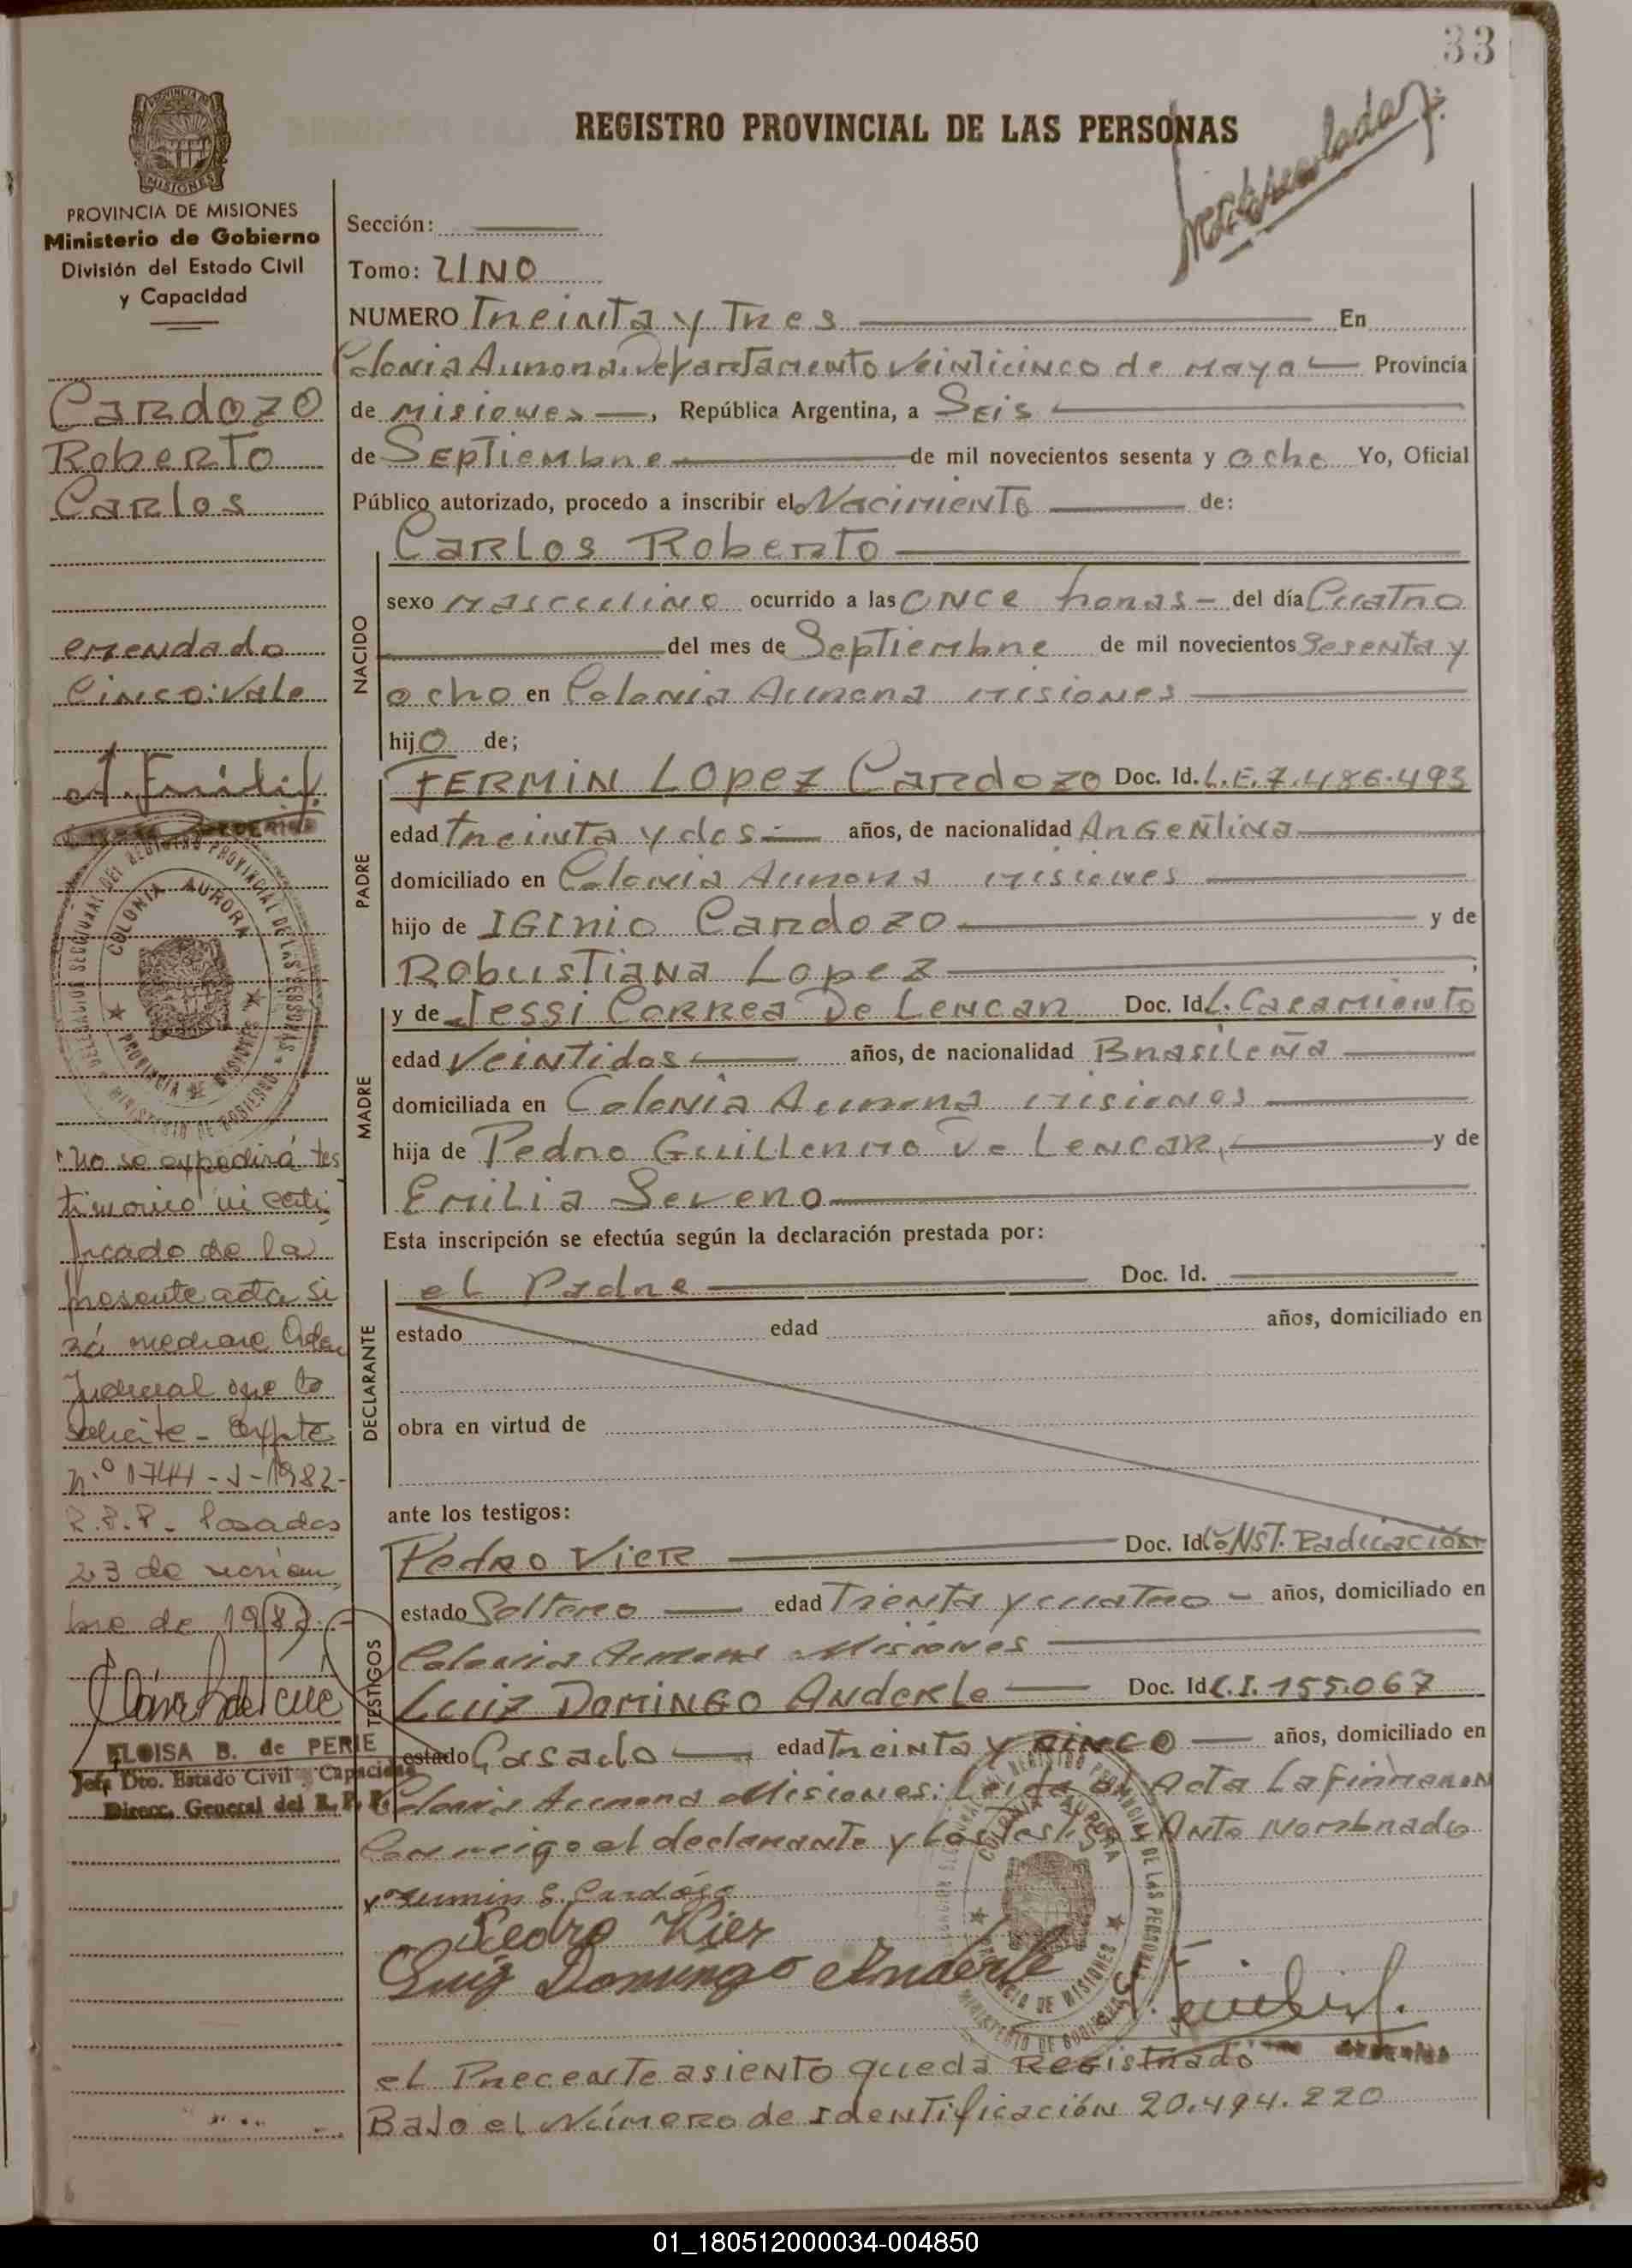 33
REGISTRO PROVINCIAL DE LAS PERSONAS
Matriculado
PROVINCIA DE MISIONES
MISIONES
PROVINCIA DE MISIONES
Ministerio de Gobierno
División del Estado Civil
y Capacidad
Cardozo
Roberto
Carlos
emendado
Cinco: Vale
COLONIA AURORA
PROVINCIA DE MISIONES
"No se expedirá tes
timonio ni certi
ficado de la
presente acta si
no mediare Orden
Judicial que lo
solicite - Expte
n.º 1744 - J - 1982 -
R.P.P. - Posadas
23 de noviem
bre de 1982. -
ELOISA B. de PERIE
Jefa Dto. Estado Civil y Capacidad
Direcc. General del R. P. P.
Sección:
Tomo: UNO
NUMERO Treinta y Tres En
Colonia Aurora. Departamento Veinticinco de Mayo Provincia
de Misiones, República Argentina, a Seis
de Septiembre de mil novecientos sesenta y ocho Yo, Oficial
Público autorizado, procedo a inscribir el Nacimiento de:
NACIDO
Carlos Roberto
sexo Masculino ocurrido a las ONCE horas - del día Cuatro
del mes de Septiembre de mil novecientos Sesenta y
ocho en Colonia Aurora Misiones
hijo de;
PADRE
FERMIN LOpez Cardozo Doc. Id. L.E.7.486.493
edad Treinta y dos años, de nacionalidad Argentina
domiciliado en Colonia Aurora Misiones
hijo de IGInio Cardozo y de
Robustiana Lopez ;
MADRE
y de Jessi Correa De Lencar Doc. Id L. Casamiento
edad Veintidos años, de nacionalidad Brasileña
domiciliada en Colonia Aurora Misiones
hija de Pedro Guillermo De Lencar, y de
Emilia Severo
Esta inscripción se efectúa según la declaración prestada por:
DECLARANTE
el Padre Doc. Id.
estado edad años, domiciliado en
obra en virtud de
ante los testigos:
TESTIGOS
Pedro Vier Doc. Id CONST. Radicación
estado Soltero edad Trienta y cuatro - años, domiciliado en
Colonia Aurora Misiones
Luiz DOMINGO Anderle Doc. Id C.I. 155.067
estado Casado edad Treinta y CINCO años, domiciliado en
Colonia Aurora Misiones: Leida el Acta La Firmaron
Conmigo el declarante y Los Testigos Ante Nombrado
Fermin L. Cardózo
Pedro Vier
Luiz Domingo Anderle
COLONIA AURORA
PROVINCIA DE MISIONES
el Precente asiento queda Registrado
Bajo el Número de Identificación 20.494.220
01_180512000034-004850